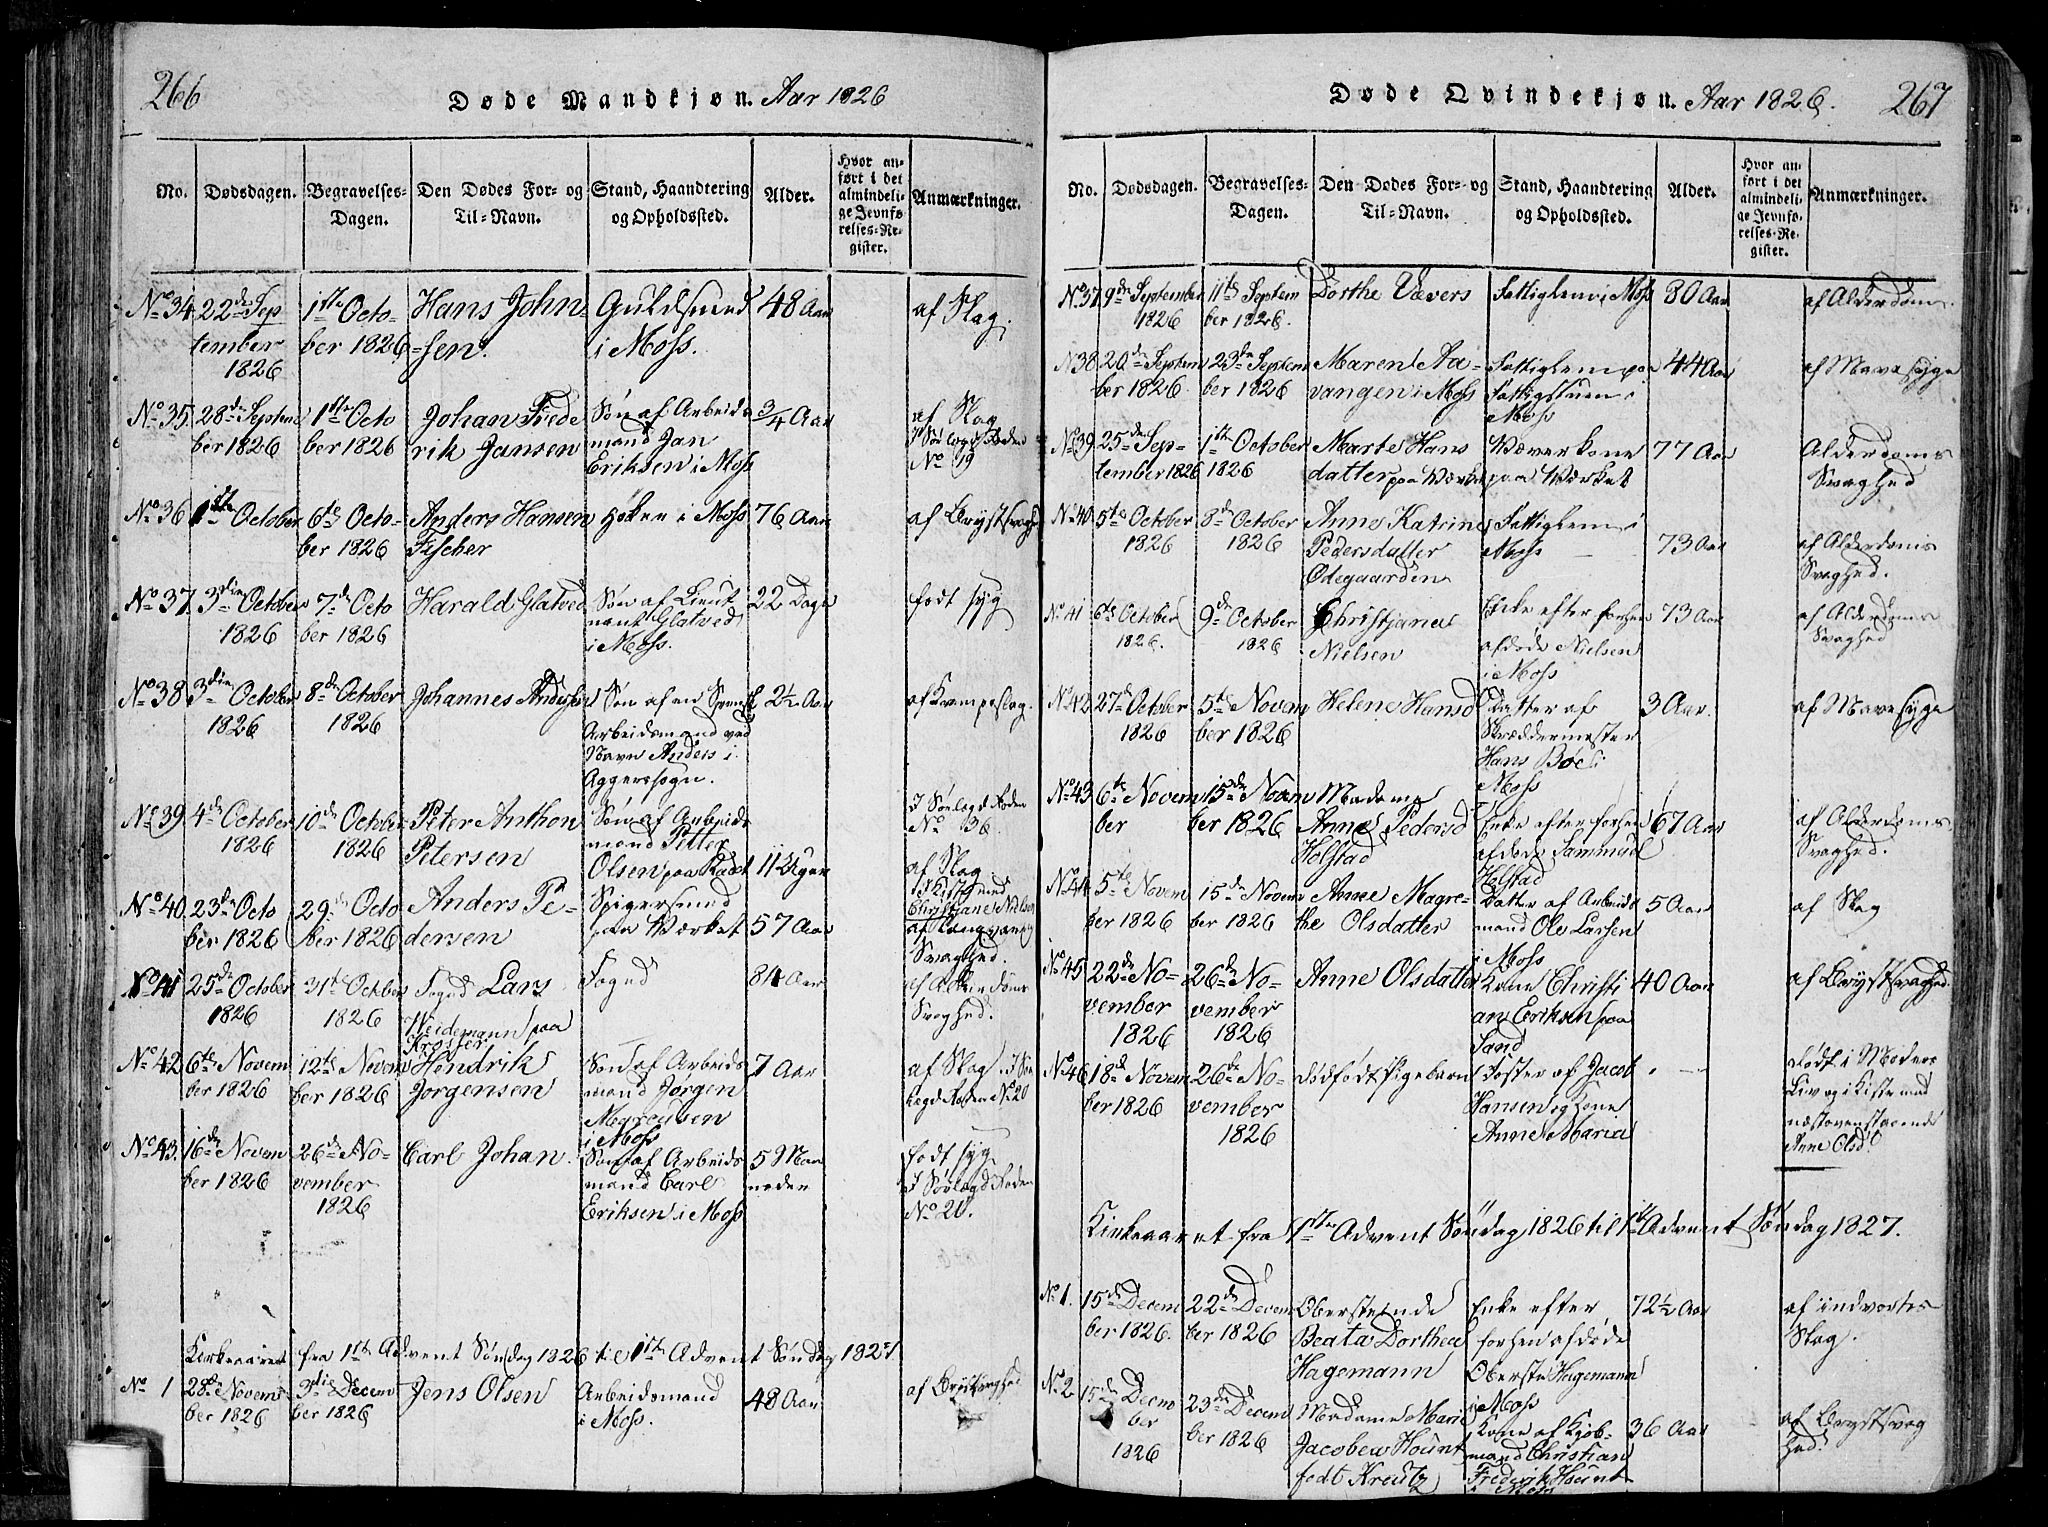 266
Døde Mandkjøn. Aar 1826
No.
Dødsdagen.
Begravelses-
Dagen.
Den Dødes For- og
Til-Navn.
Stand, Haandtering
og Opholdssted.
Alder.
Hvor an-
ført i det
almindeli-
ge Jevnfø-
relses-Re-
gister.
Anmærkninger.
No 34 22de Sep
tember
1826
1ste Octo-
ber 1826
Hans John-
sen.
Guldsmed
i Moss.
48 Aar
af Slag.
No 35. 28de Septem
ber 1826
1ste Octo
ber 1826
Johan Friede
rik Jansen
Søn af Arbeids
mand Jan
Eriksen i Moss
3/4 Aar
af Slag
No 19
No 36 1ste October
6te Octo-
ber 1826
Anders Hansen
Fischer
Høker i Moss
76 Aar
af Brystsvaghed
No 37. 3die October
1826
7de Octo
ber 1826
Harald Glatved
Søn af Lieut
nant Glatved
i Moss.
22 Dage
født syg
No 38 3die October
1826
8de October
1826
Johannes Anders
Søn af en Svensk
Arbeidsmand ved
Navn Anders i
Aggerssogn.
2½ Aar
af Krampeslag.
No 39 4de October
1826
10de October
1826
Peter Anthon
Petersen
Søn af Arbeids
mand Petter
Olsen paa
11 Uger
No 36.
af Slag
No 40. 23de Octo
ber 1826
29de Octo
ber 1826
Anders Pe-
dersen
Spigersmed
paa Værket
57 Aar
Christjane Nielsen
af Langvarig
Svaghed.
No 41 25de October
1826
31te October
1826
Foged Lars
Weidemann paa
Krosser
Foged
84 Aar
af Alderdoms
Svaghed.
No 42 6te Novem
ber 1826
12te Novem
ber 1826
Hendrik
Jorgensen
Søn af Arbeids
mand Jorgen
i Moss
7 Aar
af Slag
No 20
No 43. 16de Novem
ber 1826
26de No-
vember
1826
Carl Johan.
Søn af Arbeids
mand Carl
Eriksen i Moss
5 Maa
neder
født syg
No 20.
Kirkeaaret fra 1ste Advent Søndag 1826 til 1ste Advent Søndag 1827.
No 1 28de Novem
ber 1826
3die Decem
ber 1826
Jens Olsen
Arbeidsmand
i Moss.
48 Aar
af Brystsvaghed
Døde Qvindekjøn. Aar 1826.
267
No.
Dødsdagen.
Begravelses-
Dagen.
Den Dødes For- og
Til-Navn.
Stand, Haandtering
og Opholdssted.
Alder.
Hvor an-
ført i det
almindeli-
ge Jevnfø-
relses-Re-
gister.
Anmærkninger.
No 37 9de September
1826
11te Septem
ber 1826.
Dorthe Vævers
Fattiglem i Moss
80 Aar
af Alderdom.
No 38 20de Septem
ber 1826
23de Septem
ber 1826
Maren Aa-
vangen i Moss
Fattiglem paa
Fattigstuen i
Moss
44 Aar
af Mavesyge
No 39 25de Sep-
tember 1826
1ste October
1826
Marte Hans
datter paa Værket
Væverkone
paa Værket
77 Aar
Alderdoms
Svaghed
No 40 5te October
1826
8de October
1826
Anne Katrine
Pedersdatter
Ødegaarden
Fattiglem i
Moss
73 Aar
af Alderdoms
Svaghed.
No 41 6te October
1826.
9de October
1826
Christjane
Nielsen
Enke efter forhen
afdøde Nielsen
i Moss
73 Aar
af Alderdoms
Svaghed
No 42 27de October
1826
5te Novem
ber 1826
Helene Hansd
Datter af
Skræddermester
Hans Böe i
Moss
3 Aar.
af Mavesyge
No 43 6te Novem
ber
15de Novem
ber 1826
Madame
Anne Pedersd
Holstad
Enke efter forhen
afdøde Sammuel
Holstad
67 Aar
af Alderdoms
Svaghed.
No 44 5te Novem
ber 1826
15de Novem
ber 1826
Anne Magre-
the Olsdatter
Datter af Arbeids
mand Ole Larsen
i Moss
5 Aar
af Slag
No 45 22de No-
vember
1826
26de No-
vember
1826
Anne Olsdatter
Kone Christi
an Eriksen paa
Sand
40 Aar
af Brystsvaghed.
No 46 18de Novem
ber 1826
26de No-
vember
1826
dødfødt Pigebarn
Foster af Jacob
Hansen og Kone
Anne Maria
dødt i Moders
Liv og i Kiste med
næstovenstaaende
Anne Olsd.
Kirkeaaret fra 1ste Advent Søndag 1826 til 1ste Advent Søndag 1827.
No 1. 15de Decem
ber 1826.
22de Decem
ber 1826
Oberstinde
Beata Dorthea
Hagemann
Enke efter
forhen afdøde
Oberste Hagemann
i Moss
72½ Aar
af indvortes
Slag.
No 2 15de Decem
ber
1826
23de Decem
ber 1826
Madame Marie
Jacobea Hount
født Kreutz
Kone af Kjøb-
mand Christian
Frederik Hount
i Moss
36 Aar
af Brystsvag
hed.